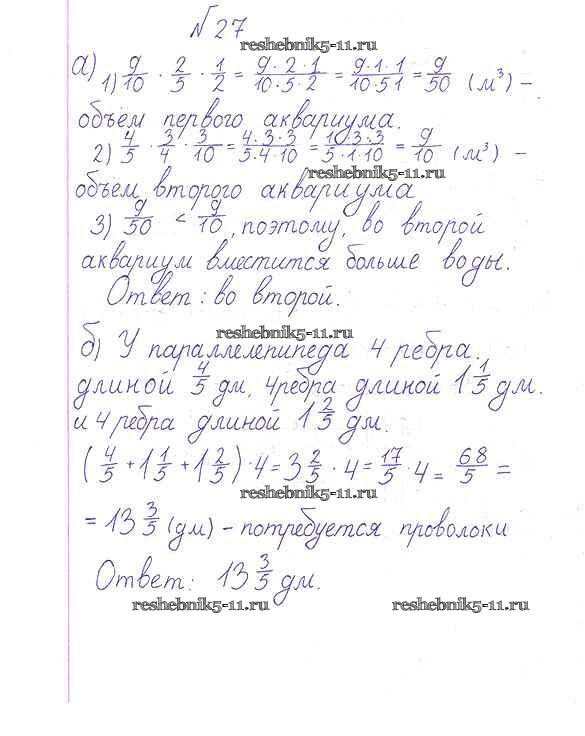 №27
reshebnik5-11.ru
а) 1) 9/10 · 2/5 · 1/2 = 9·2·1/10·5·2 = 9·1·1/10·5·1 = 9/50 (м³) –
объём первого аквариума.
2) 4/5 · 3/4 · 3/10 = 4·3·3/5·4·10 = 1·3·3/5·1·10 = 9/10 (м³) –
reshebnik5-11.ru
объем второго аквариума
3) 9/50 < 9/10, поэтому, во второй
аквариум вместится больше воды.
Ответ: во второй.
reshebnik5-11.ru
б) У параллелепипеда 4 ребра.
длиной 4/5 дм, 4 ребра длиной 1 1/5 дм.
и 4 ребра длиной 1 2/5 дм.
(4/5 + 1 1/5 + 1 2/5) · 4 = 3 2/5 · 4 = 17/5 · 4 = 68/5 =
reshebnik5-11.ru
= 13 3/5 (дм) – потребуется проволоки
Ответ: 13 3/5 дм.
reshebnik5-11.ru reshebnik5-11.ru